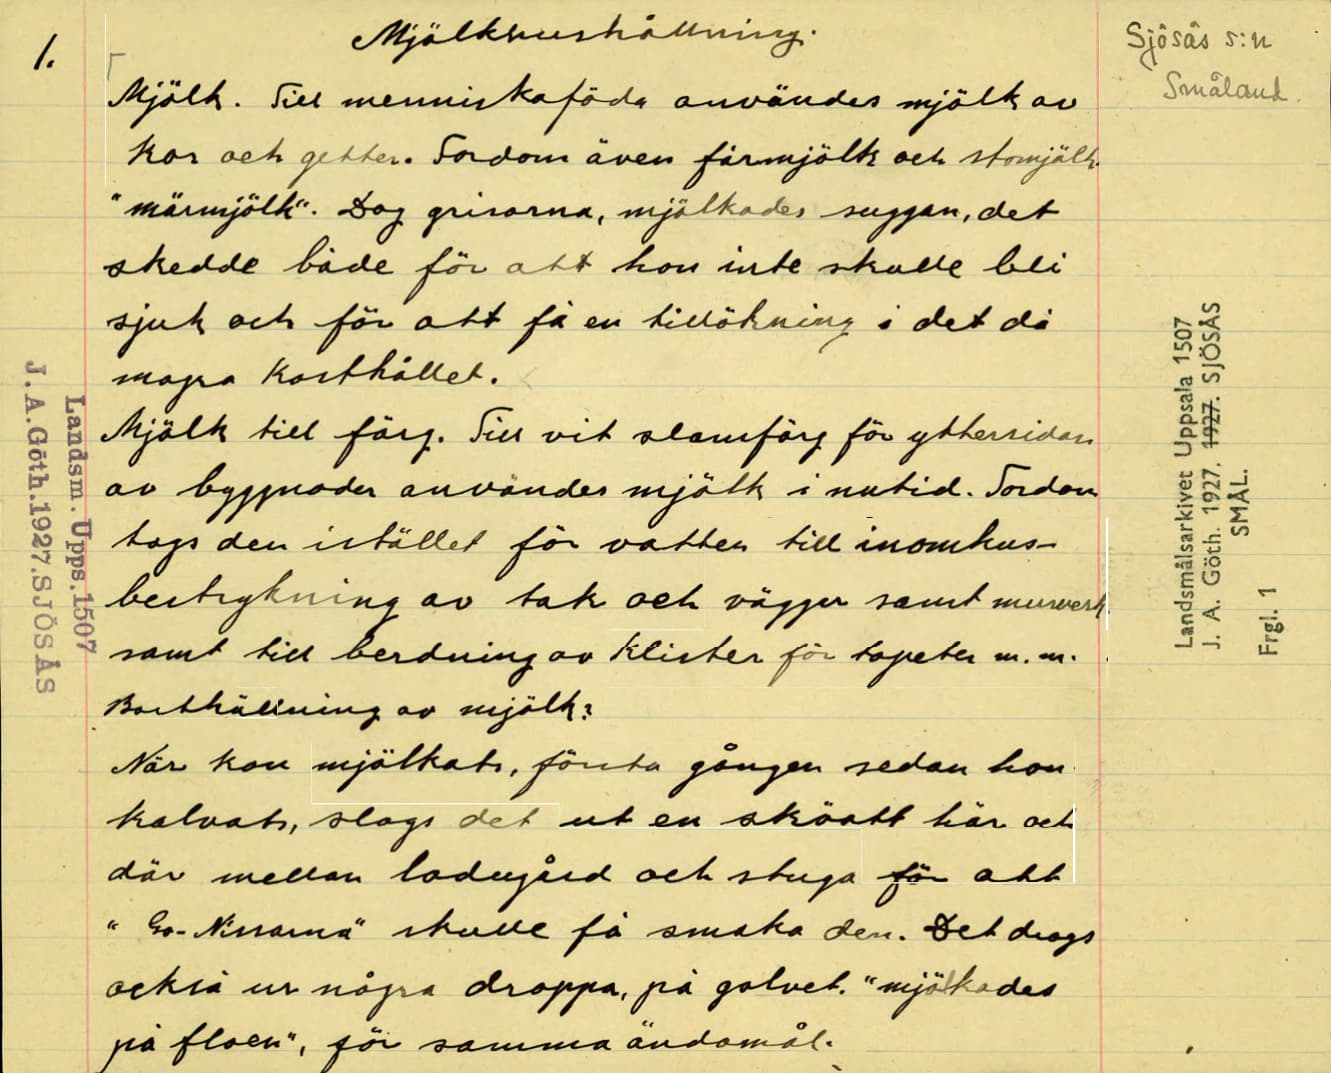 1.
Mjölkhushållning.
Sjösås s:n
Småland.
Mjölk. Till menniskaföda användes mjölk av
kor och getter. Fordom även fårmjölk och stomjölk
"märmjölk". Dog grisarna, mjölkades suggan, det
skedde både för att hon inte skulle bli
sjuk och för att få en tillökning i det då
magra kosthållet.
Mjölk till färg. Till vit slamfärg för yttersidan
av byggnader användes mjölk i nutid. Fordom
togs den istället för vatten till inomhus-
bestrykning av tak och väggar samt murverk
samt till beredning av klister för tapeter m.m.
Borthällning av mjölk:
När kon mjölkats, första gången sedan hon
kalvats, slogs det ut en skvätt här och
där mellan ladugård och stuga för att
"Go-Nissarna" skulle få smaka den. Det drogs
också ur några droppa, på golvet. "mjölkades
på floen", för samma ändamål.
Landsm. Upps. 1507
J. A. Göth. 1927. SJÖSÅS
Landsmålsarkivet Uppsala 1507
J. A. Göth. 1927. 1927. SJÖSÅS
SMÅL.
Frgl. 1